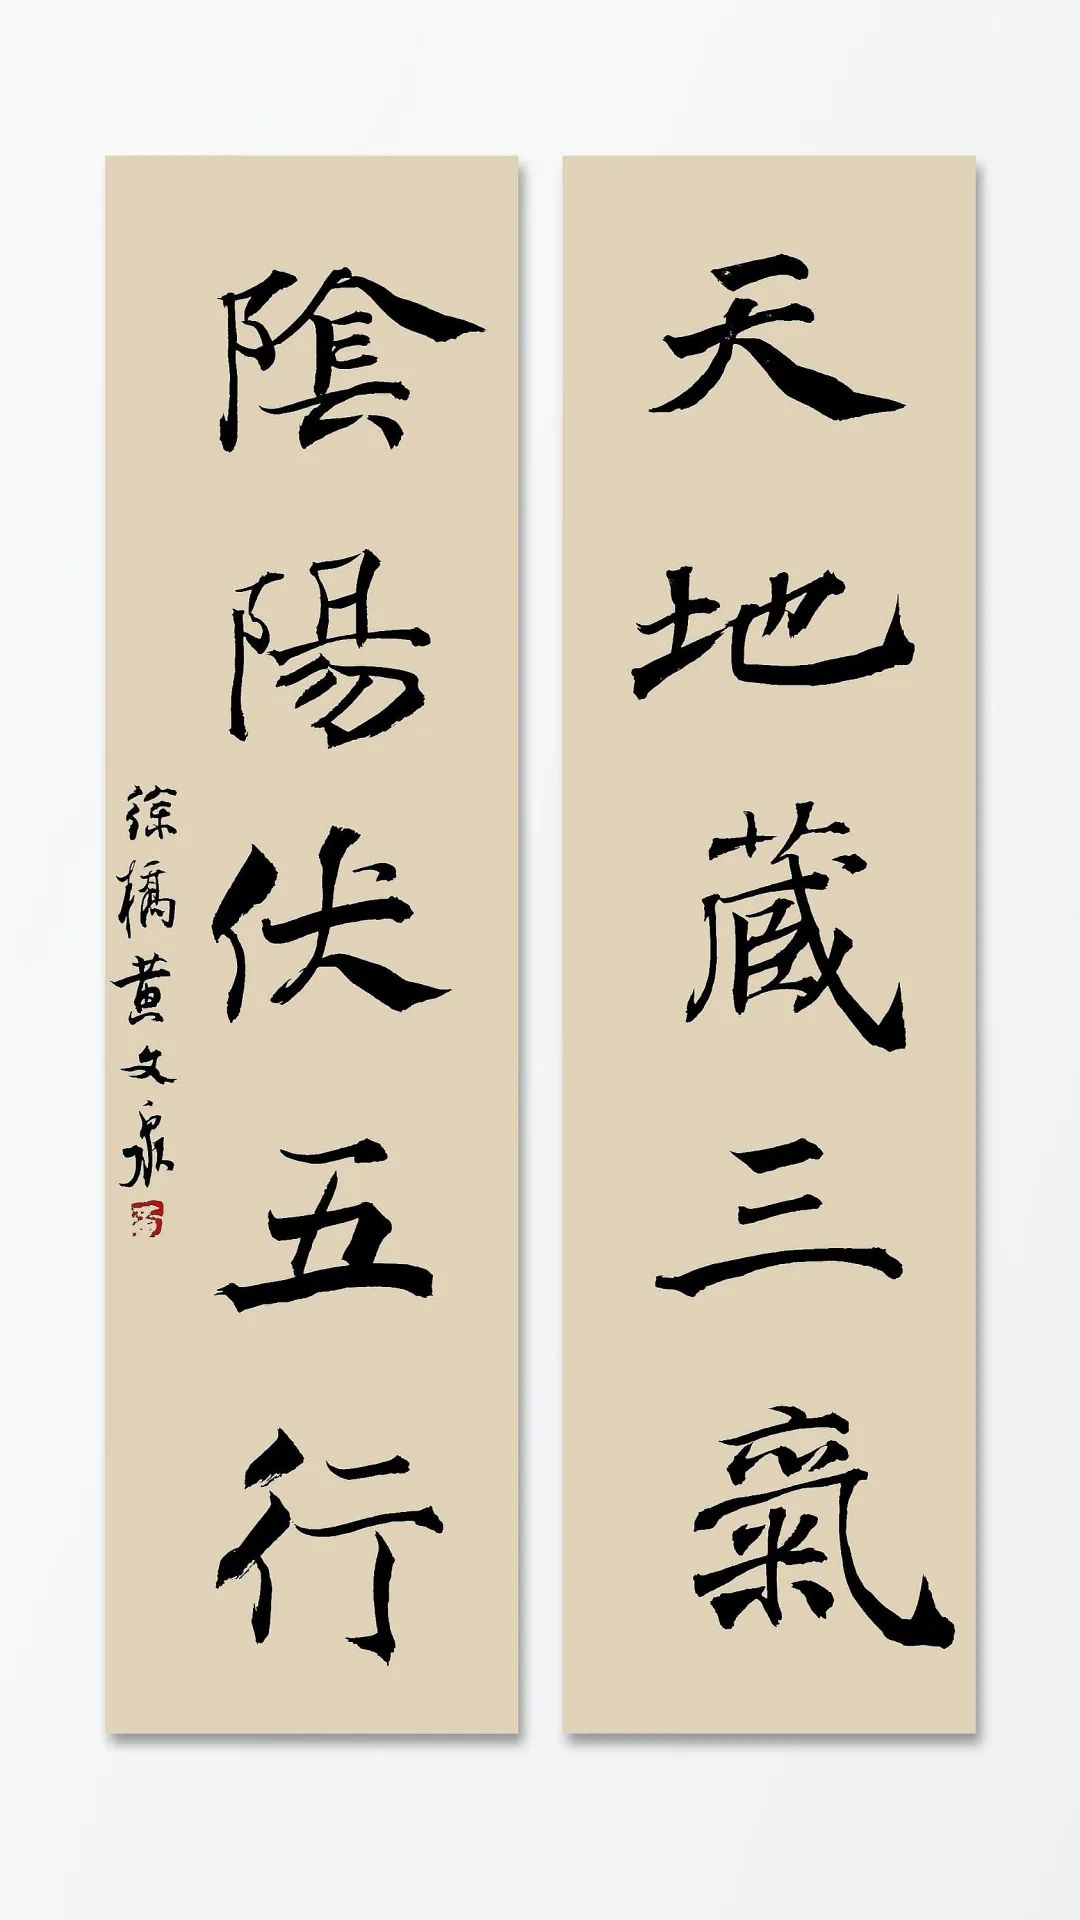 天地蔵三氣
陰陽伏五行
徐橋黄文泉
黄